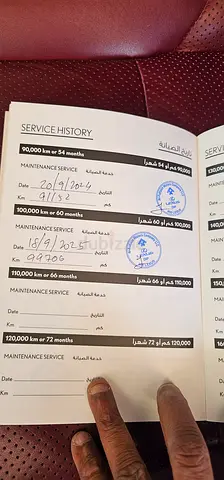 SERVICE HISTORY تاريخ الصيانة
90,000 km or 54 months 90,000 كم أو 54 شهراً
MAINTENANCE SERVICE خدمة الصيانة
Date 20/9/2024 التاريخ
Km 91152 كم
100,000 km or 60 months 100,000 كم أو 60 شهراً
MAINTENANCE SERVICE خدمة الصيانة
Date 18/9/2025 التاريخ
Km 99706 كم
110,000 km or 66 months 110,000 كم أو 66 شهراً
MAINTENANCE SERVICE خدمة الصيانة
Date التاريخ
Km كم
120,000 km or 72 months 120,000 كم أو 72 شهراً
MAINTENANCE SERVICE خدمة الصيانة
Date التاريخ
Km
SERV
130,
140,
150,
160
dubizzle